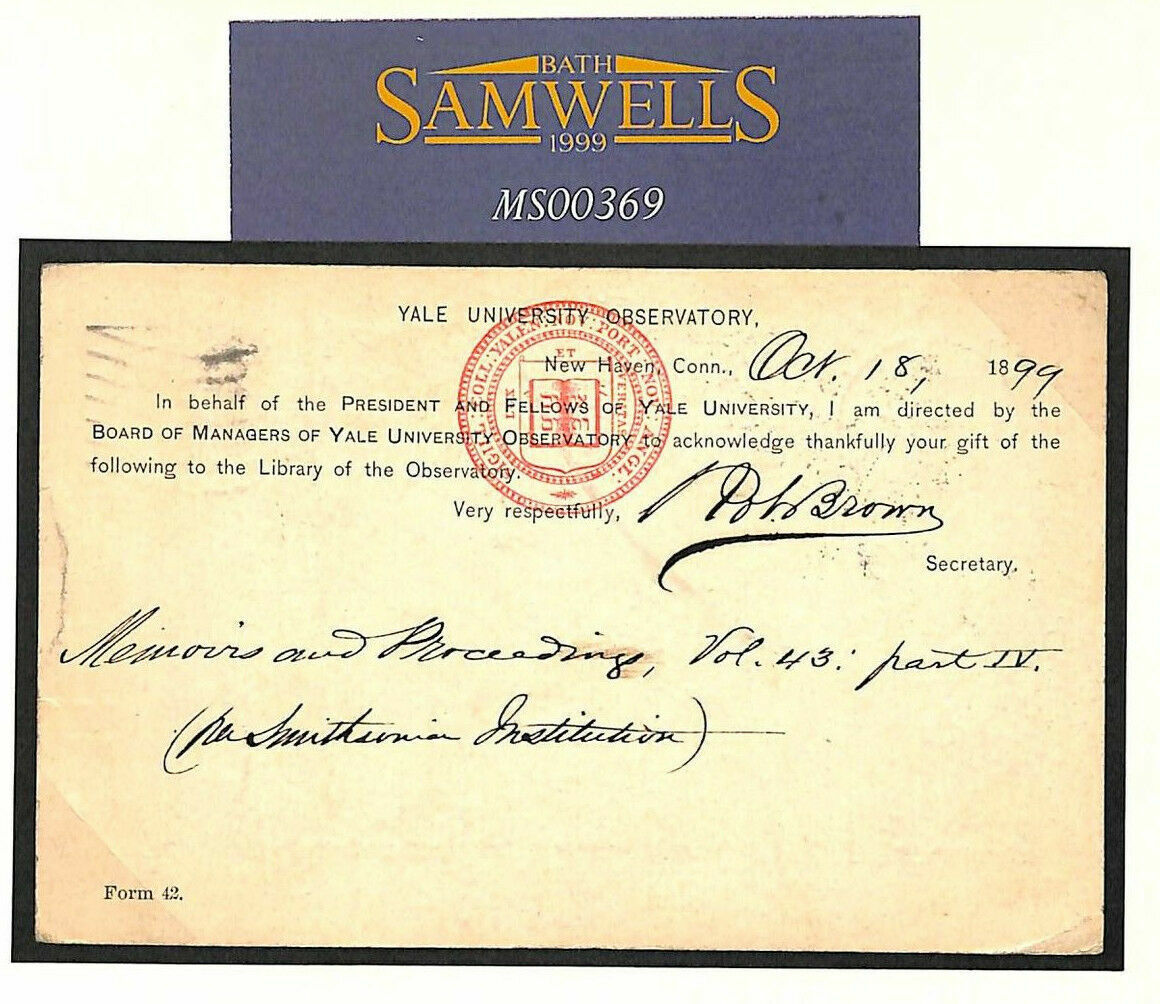 BATH
SAMWELLS
1999
MS00369
YALE UNIVERSITY OBSERVATORY,
New Haven, Conn., Oct. 18, 1899
In behalf of the PRESIDENT AND FELLOWS OF YALE UNIVERSITY, I am directed by the
BOARD OF MANAGERS OF YALE UNIVERSITY OBSERVATORY to acknowledge thankfully your gift of the
following to the Library of the Observatory.
Very respectfully, Brown
Secretary.
Memoirs and Proceedings, Vol. 43: part IV.
(per Smithsonian Institution)
Form 42.
SIGILL: COLL: YALEN: NOV: PORT: NOV: ANGL:
ET